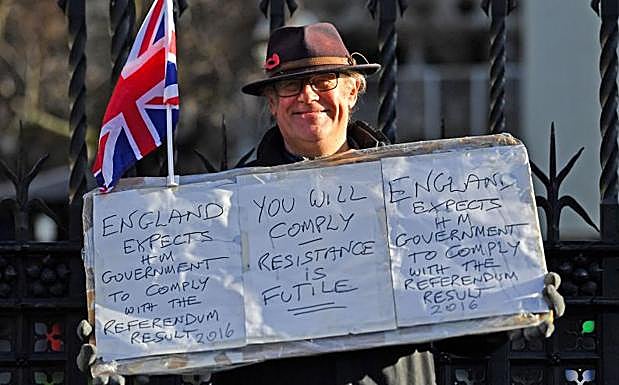 ENGLAND
EXPECTS
HM
GOVERNMENT
TO COMPLY
WITH THE
REFERENDUM
RESULT 2016
YOU WILL
COMPLY
RESISTANCE
IS
FUTILE
ENGLAND
EXPECTS
HM
GOVERNMENT
TO COMPLY
WITH THE
REFERENDUM
RESULT
2016